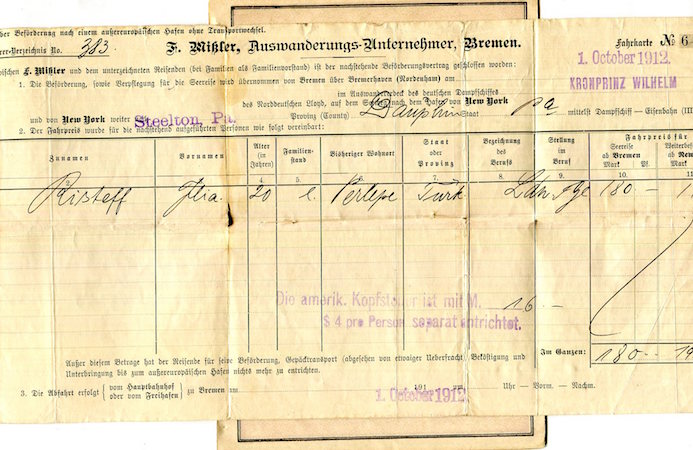 her Beförderung nach einem außereuropäischen Hafen ohne Transportwechsel.
rer-Verzeichnis No. 383. F. Mißler, Auswanderungs-Unternehmer, Bremen. Fahrkarte № 6
wischen F. Mißler und dem unterzeichneten Reisenden (bei Familien als Familienvorstand) ist der nachstehende Beförderungsvertrag geschlossen worden:
1. October 1912.
1. Die Beförderung, sowie Verpflegung für die Seereise wird übernommen von Bremen über Bremerhaven (Nordenham) am
KRONPRINZ WILHELM
im Auswandererdeck des deutschen Dampfschiffes
des Norddeutschen Lloyd, auf dem nach dem Hafen von New York
und von New York weiter Steelton, Pa. Provinz (County) Dauphin Staat Pa mittelst Dampfschiff – Eisenbahn (III
2. Der Fahrpreis wurde für die nachstehend aufgeführten Personen wie folgt vereinbart:
Zunamen Vornamen Alter (in Jahren) Familien-stand Bisheriger Wohnort Staat oder Provinz Bezeichnung des Berufs Stellung im Beruf Fahrpreis für
Seereise ab Bremen Mark Pf. Weiterbef ab New Mark
4. 5. 6. 7. 8. 9. 10. 11.
Risteff Ilia 20 l. Perlepe Türk 180 —
Die amerik. Kopfsteuer ist mit M. 16 —
$ 4 pro Person separat entrichtet.
Außer diesem Betrage hat der Reisende für seine Beförderung, Gepäcktransport (abgesehen von etwaiger Ueberfracht), Beköstigung und
Unterbringung bis zum außereuropäischen Hafen nichts mehr zu entrichten.
Im Ganzen: 180 — 19
3. Die Abfahrt erfolgt { vom Hauptbahnhof oder vom Freihafen } zu Bremen am 1. October 1912. 191 um Uhr – Vorm. – Nachm.